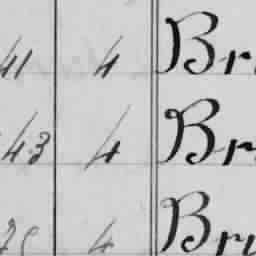 41 4 Br
43 4 Br
4 Br